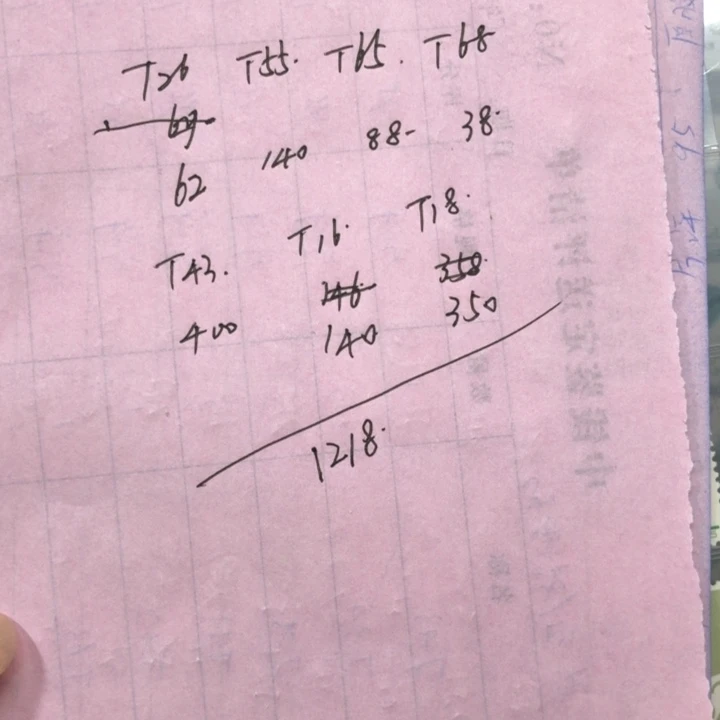 T26 T55. T65. T68
69
62 140 88- 38.
T43. T16. T18.
346 358
400 140 350
1218.
95